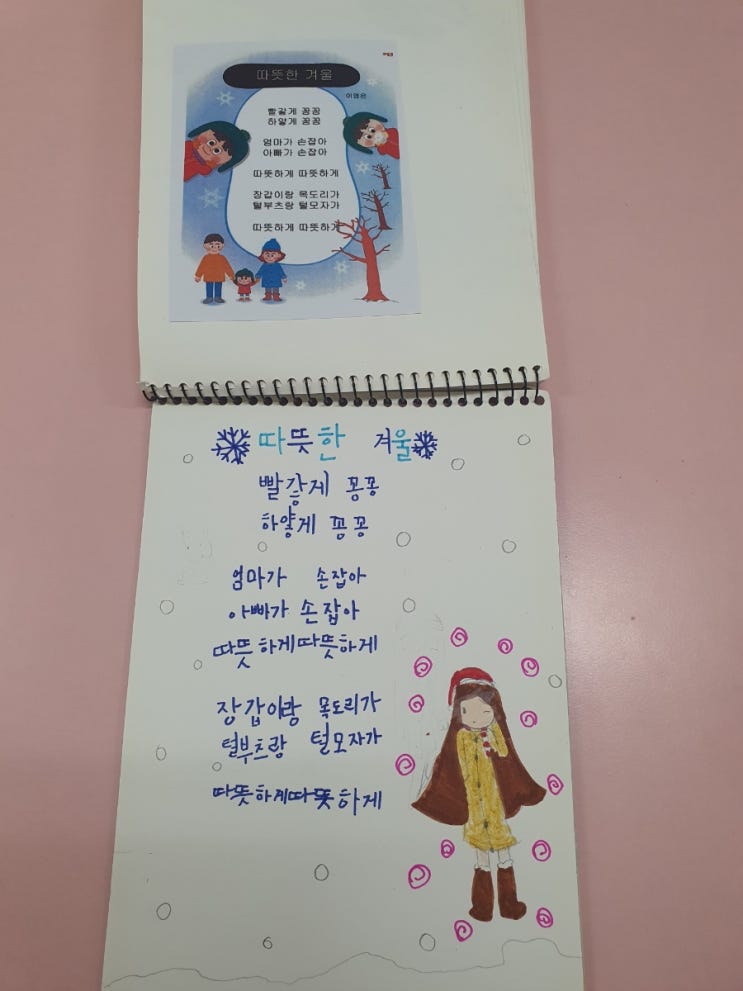 따뜻한 겨울
이영은
빨갛게 꽁꽁
하얗게 꽁꽁
엄마가 손잡아
아빠가 손잡아
따뜻하게 따뜻하게
장갑이랑 목도리가
털부츠랑 털모자가
따뜻하게 따뜻하게
따뜻한 겨울
빨갛게 꽁꽁
하얗게 꽁꽁
엄마가 손잡아
아빠가 손잡아
따뜻하게따뜻하게
장갑이랑 목도리가
털부츠랑 털모자가
따뜻하게따뜻하게